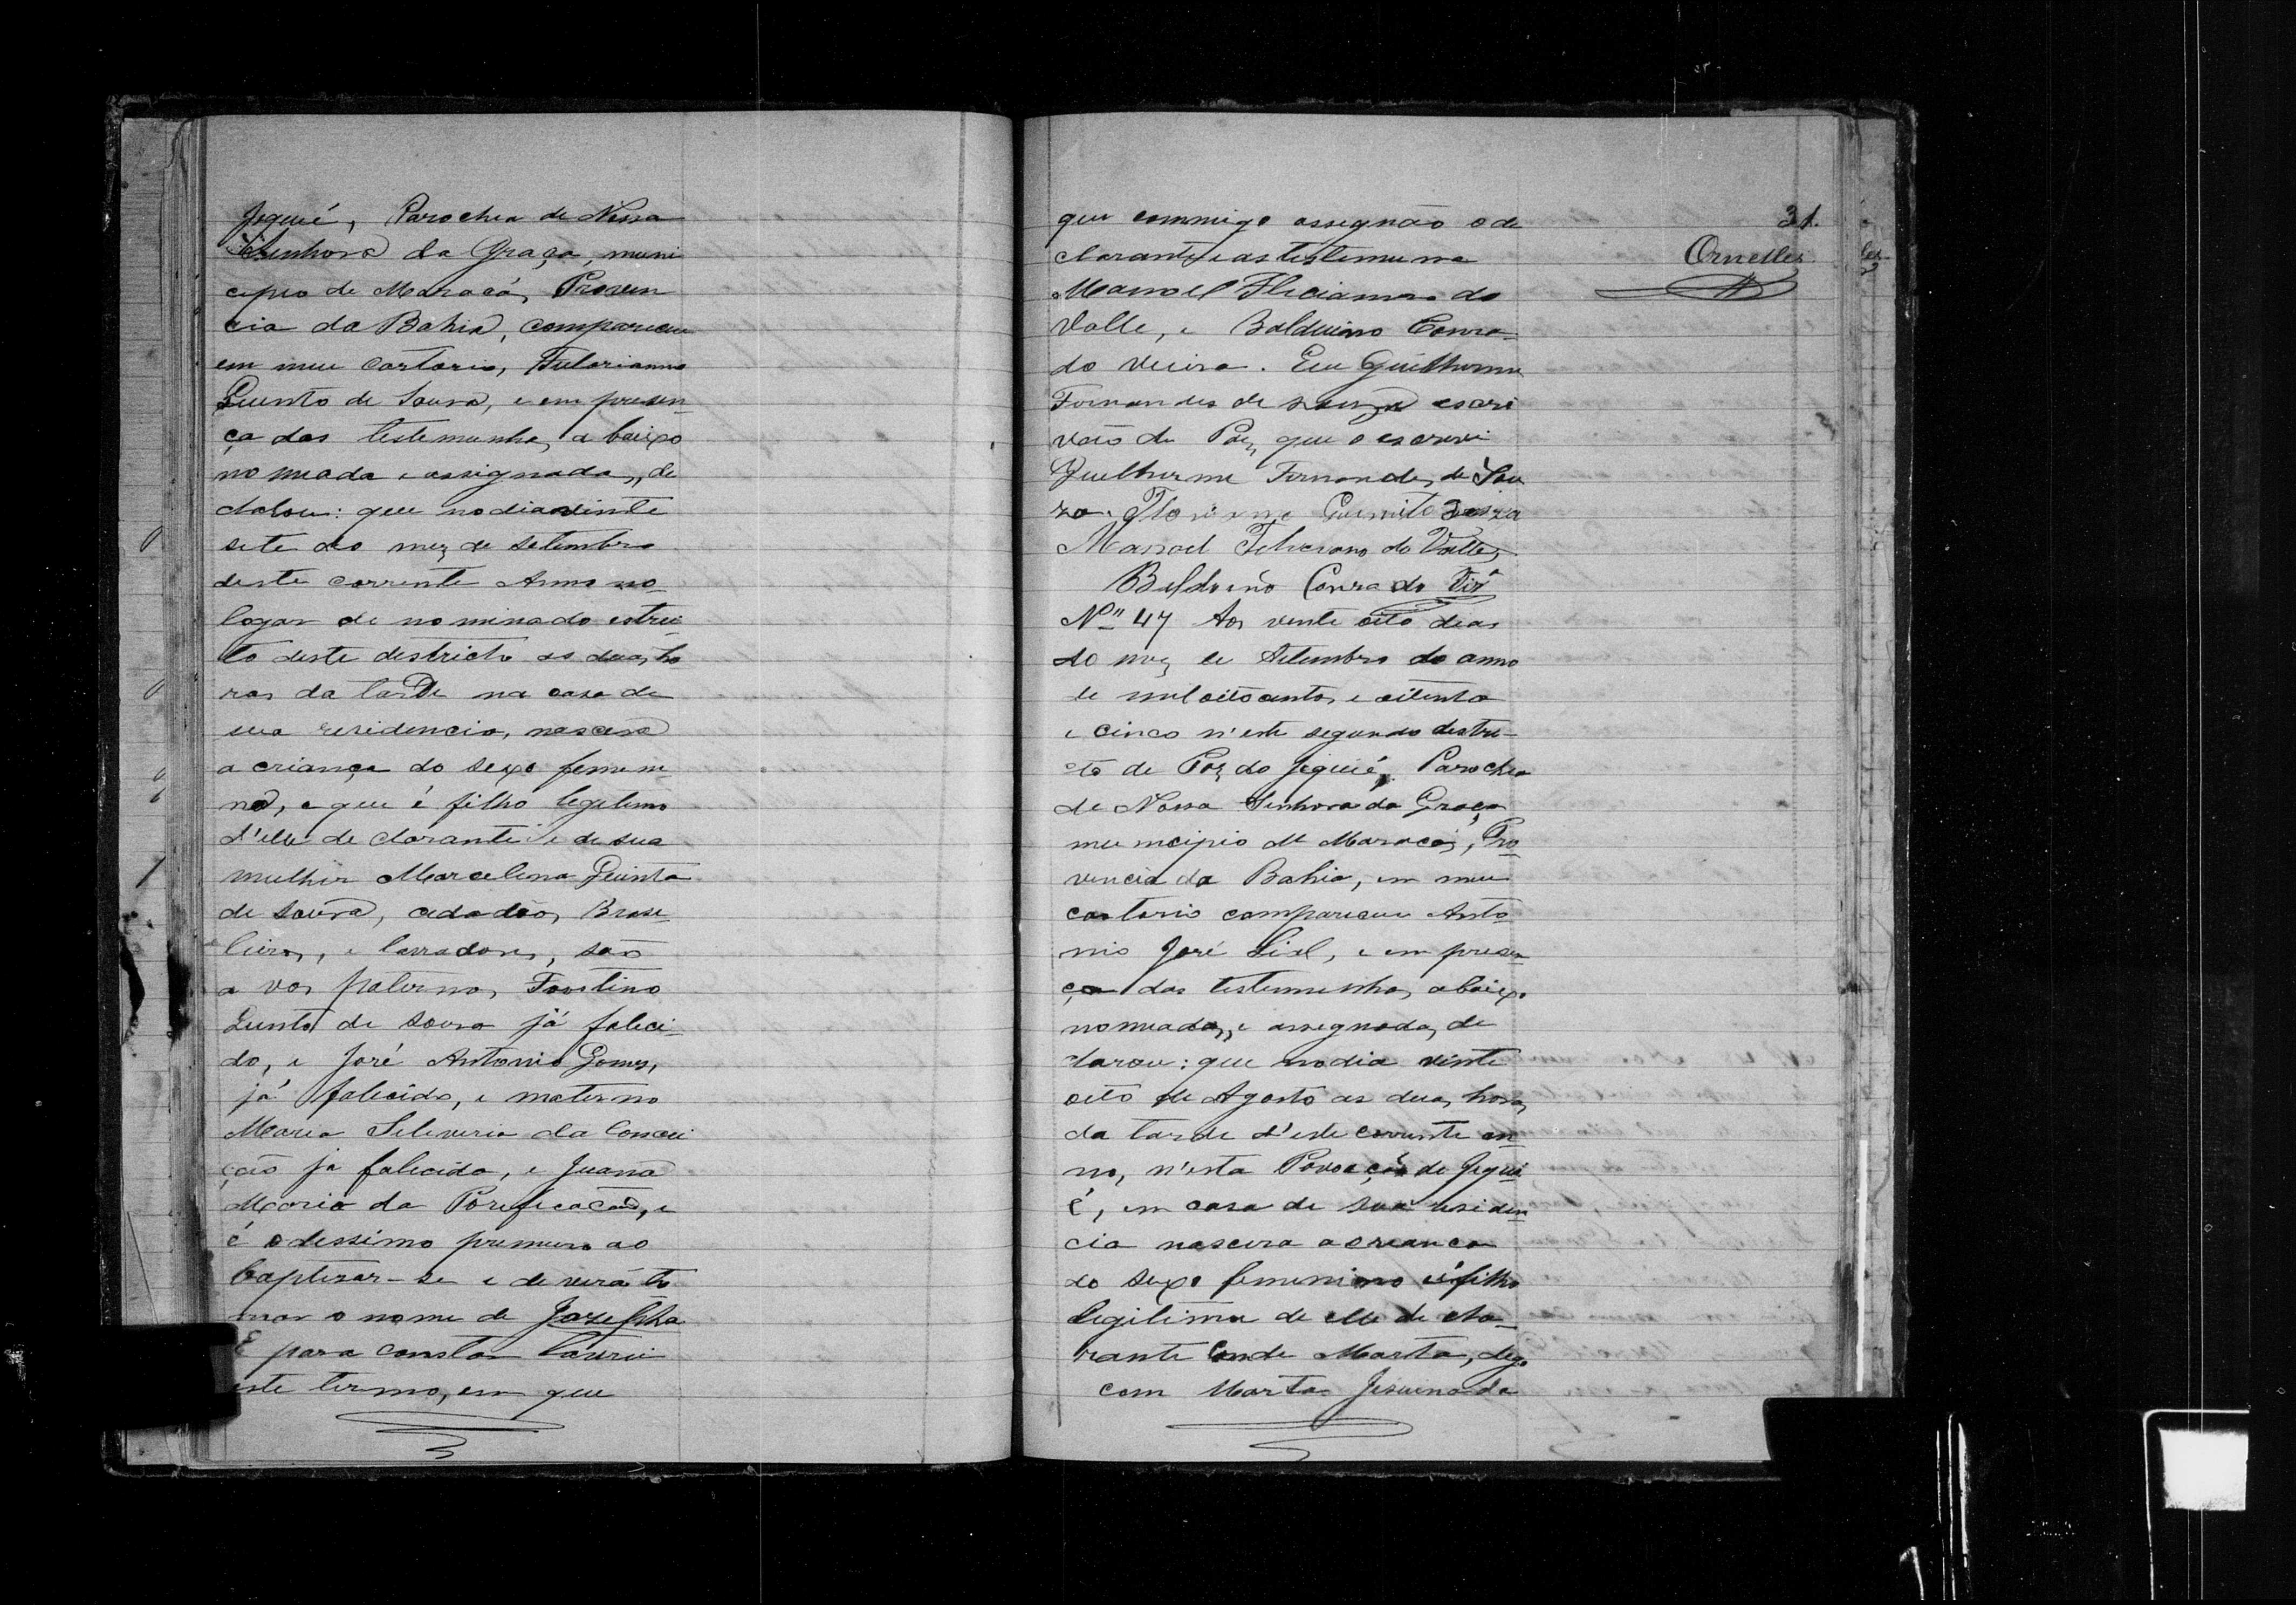 Jequié, Parochia de Nossa
Senhora da Graça, muni
cipio de Maracás, Provin
cia da Bahia, compareceu
em meu Cartorio,
Quinto de Sousa, e em presen-
ça das testemunhas, a baixo
no meada e assignada, de
clarou: que no dia vinte
sete do mez de Setembro
deste corrente Anno no
logar de no minado estrei
to deste destricto as duas ho
ras da tarde na casa de
sua residencia, nascera
a criança do sexo femini
no, e que é filho legitimo
d'elle de clarante e de sua
mulher Marcelina Quinta
de Sousa, cidadãos, Brasi
leiros, e lavradores, são
a vos paternos, Faustino
Quinto de Sousa já faleci-
do, e José Antonio Gomes,
já falecido, e materno
Maria Silveria da Concei
ção já falecida, e Juana
Maria da Porificação, e
é o dessimo primeiro ao
baptizar-se e de verá to
mar o nome de Josefiha
E para constar lavrei
este termo, em que
que commigo assegnão o de
clarante e as testemuna
Manoel Feliciano do
Valle, e Balduino Conra
do Vieira. Eu Guilherme
Fernandes de Souza escri
vão de Paz, que o escrevi
Guelherme Fernandes de Sou
za. Quinto Souza
Manoel Feliciano do Valle
Balduino Conrado Vir.ª
Nº 47 Aos vente oito dias
do mez de Setembro do anno
de mil oitocentos e oitenta
e cinco n'este segundo destri-
cto de Paz do Jequié, Parochia
de Nossa Senhora da Graça,
mu nicipio de Maracás, Pro
vencia da Bahia, em meu
cartorio compareceu Anto
nio José Lial, e em presen
ça das testemunhas, abaixo
nomeadas, e assegnada, de
clarou: que no dia vinte
oito de Agosto as duas horas
da tarde d'este corrente an
no, n'esta Povoação de Jequi
é, em casa de sua residen
cia nascera a creança
do sexo femenino é filho
Legitima de elle de cla-
rante Conde Marta, digo
com Marta Jesuina de
31.
Ornelles